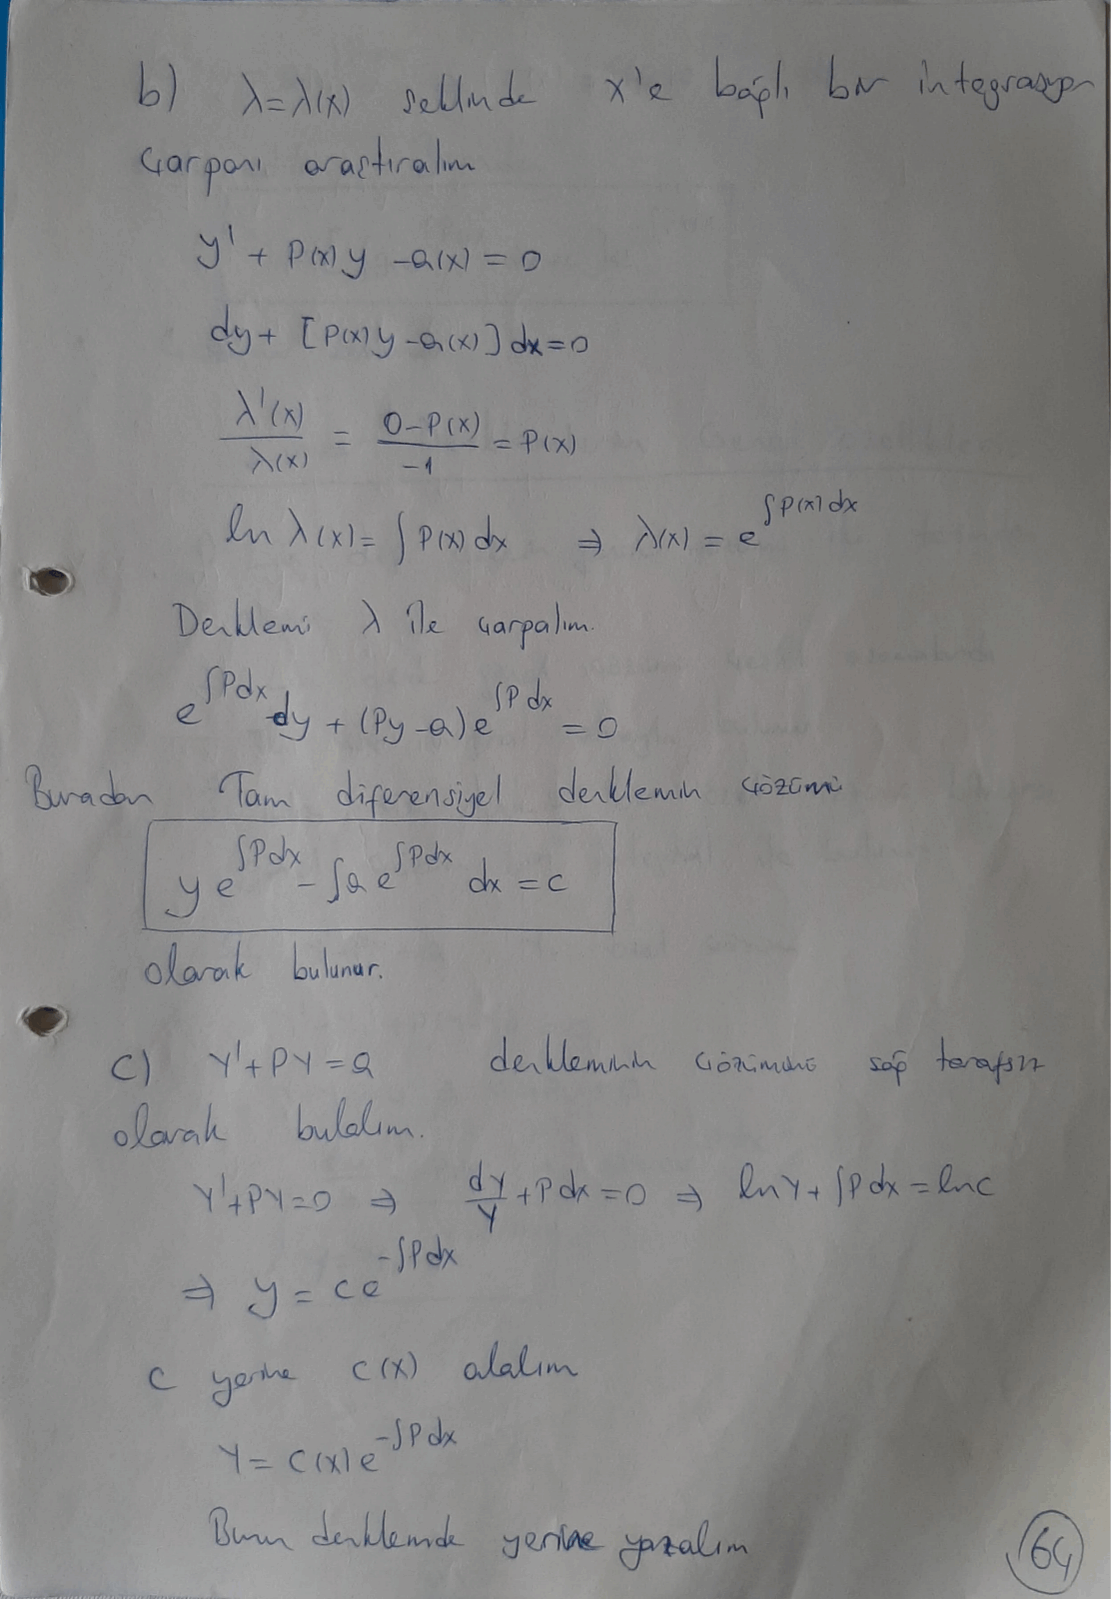 b) λ=λ(x) seklinde x'e bağlı bir integrasyon
çarpanı araştıralım
y' + P(x)y - Q(x) = 0
dy + [P(x)y - Q(x)] dx = 0
λ'(x)/λ(x) = (0-P(x))/-1 = P(x)
ln λ(x) = ∫P(x) dx ⇒ λ(x) = e^∫P(x)dx
Denklemi λ ile çarpalım.
e^∫Pdx dy + (Py-Q)e^∫Pdx = 0
Buradan Tam diferensiyel denklemin çözümü
y e^∫Pdx - ∫Q e^∫Pdx dx = c
olarak bulunur.
c) Y'+PY=Q denkleminin çözümünü sağ tarafsız
olarak bulalım.
Y'+PY=0 ⇒ dY/Y + Pdx=0 ⇒ lnY+∫Pdx=lnc
⇒ y = ce^-∫Pdx
c yerine c(x) alalım
Y = c(x)e^-∫Pdx
Bunu denklemde yerine yazalım
64